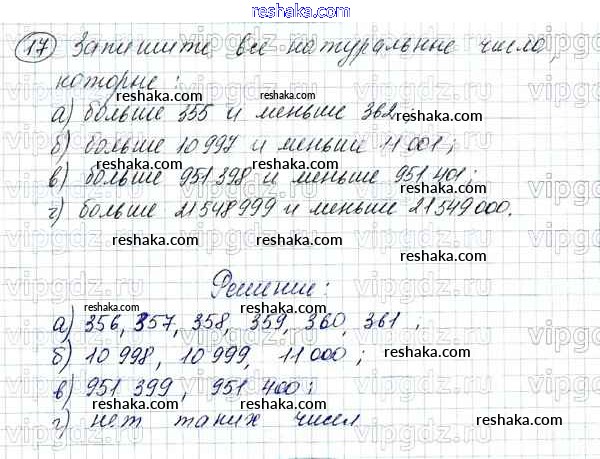 reshaka.com
17 Запишите все натуральные число,
которые:
а) больше 355 и меньше 362;
б) больше 10 997 и меньше 11 001;
в) больше 951 398 и меньше 951 401;
г) больше 21 548 999 и меньше 21 549 000.
Решение:
а) 356, 357, 358, 359, 360, 361;
б) 10 998, 10 999, 11 000;
в) 951 399, 951 400;
г) нет таких чисел